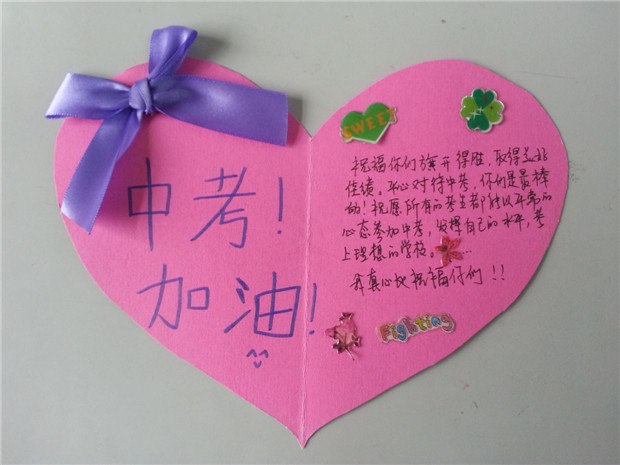 中考！
加油！
SWEET
祝福你们旗开得胜，取得美好
佳绩。平心对待中考，你们是最棒
的！祝愿所有的考生都能以平常的
心态参加中考，发挥自己的水平，考
上理想的学校。……
我真心地祝福你们！！
Fighting